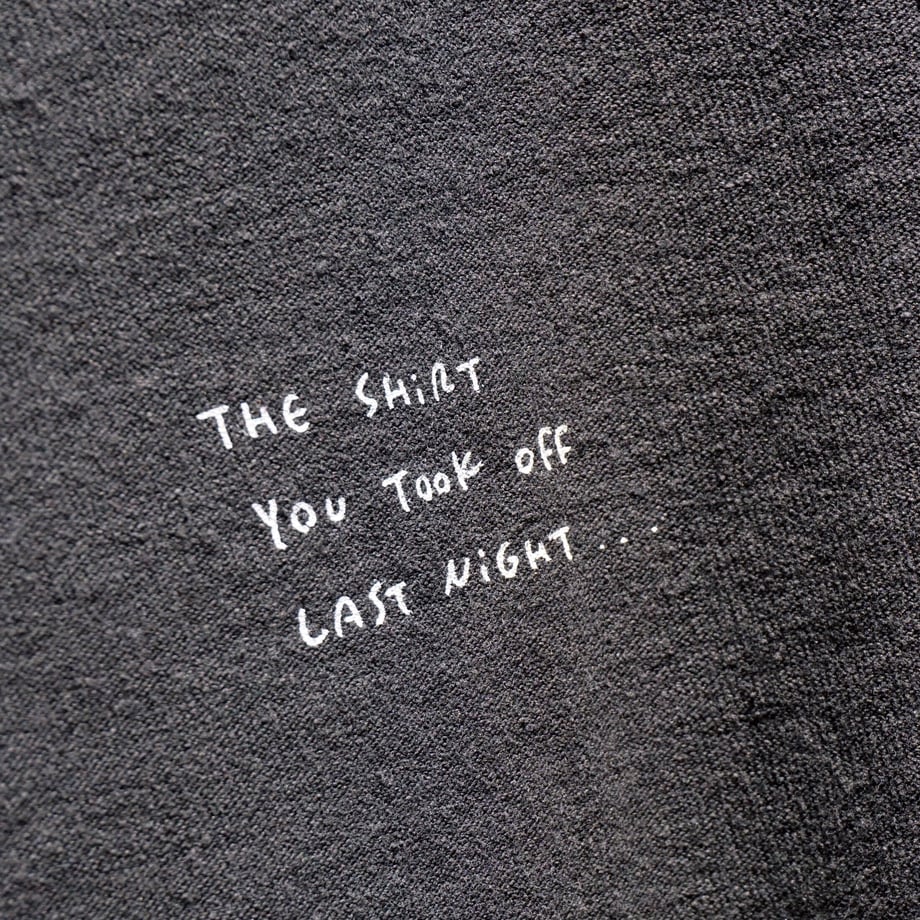 THE SHiRT
YOU TOOK OFF
LAST NiGHT...